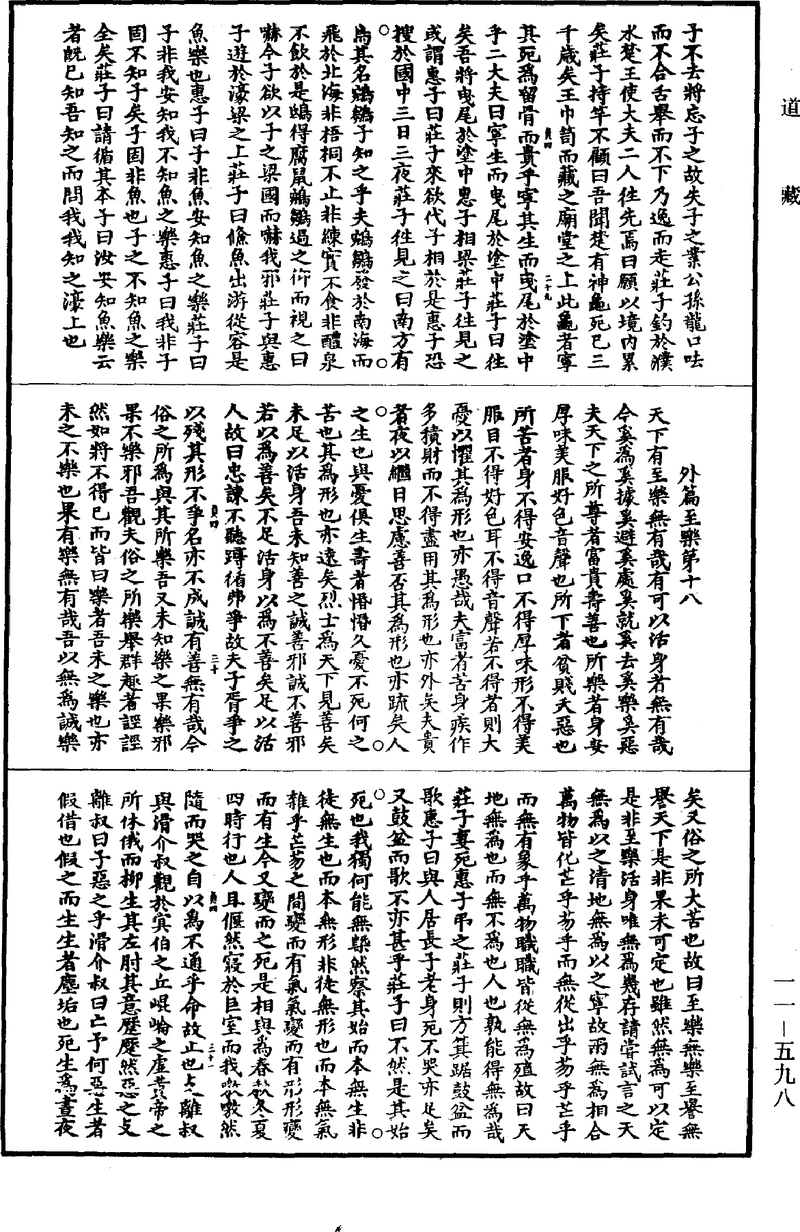 道藏
子不去將忘子之故失子之業公孫龍口呿
而不合舌舉而不下乃逸而走莊子釣於濮
水楚王使大夫二人往先焉曰願以境內累
矣莊子持竿不顧曰吾聞楚有神龜死已三
千歲矣王巾笥而藏之廟堂之上此龜者寧
貞四 二十九
其死為留骨而貴乎寧其生而曳尾於塗中
乎二大夫曰寧生而曳尾於塗中莊子曰往
矣吾將曳尾於塗中惠子相梁莊子往見之
或謂惠子曰莊子來欲代子相於是惠子恐
搜於國中三日三夜莊子往見之曰南方有
鳥其名鵷鶵子知之乎夫鵷鶵發於南海而
飛於北海非梧桐不止非練實不食非醴泉
不飲於是鴟得腐鼠鵷鶵過之仰而視之曰
嚇今子欲以子之梁國而嚇我邪莊子與惠
子遊於濠梁之上莊子曰鯈魚出游從容是
魚樂也惠子曰子非魚安知魚之樂莊子曰
子非我安知我不知魚之樂惠子曰我非子
固不知子矣子固非魚也子之不知魚之樂
全矣莊子曰請循其本子曰汝安知魚樂云
者既已知吾知之而問我我知之濠上也
外篇至樂第十八
天下有至樂無有哉有可以活身者無有哉
今奚為奚據奚避奚處奚就奚去奚樂奚惡
夫天下之所尊者富貴壽善也所樂者身安
厚味美服好色音聲也所下者貧賤夭惡也
所苦者身不得安逸口不得厚味形不得美
服目不得好色耳不得音聲若不得者則大
憂以懼其為形也亦愚哉夫富者苦身疾作
多積財而不得盡用其為形也亦外矣夫貴
者夜以繼日思慮善否其為形也亦疏矣人
之生也與憂俱生壽者惛惛久憂不死何之
苦也其為形也亦遠矣烈士為天下見善矣
未足以活身吾未知善之誠善邪誠不善邪
若以為善矣不足活身以為不善矣足以活
人故曰忠諫不聽蹲循弗爭故夫子胥爭之
貞四 三十
以殘其形不爭名亦不成誠有善無有哉今
俗之所為與其所樂吾又未知樂之果樂邪
果不樂邪吾觀夫俗之所樂舉群趣者誙誙
然如將不得已而皆曰樂者吾未之樂也亦
未之不樂也果有樂無有哉吾以無為誠樂
矣又俗之所大苦也故曰至樂無樂至譽無
譽天下是非果未可定也雖然無為可以定
是非至樂活身唯無為幾存請嘗試言之天
無為以之清地無為以之寧故兩無為相合
萬物皆化芒乎芴乎而無從出乎芴乎芒乎
而無有象乎萬物職職皆從無為殖故曰天
地無為也而無不為也人也孰能得無為哉
莊子妻死惠子弔之莊子則方箕踞鼓盆而
歌惠子曰與人居長子老身死不哭亦足矣
又鼓盆而歌不亦甚乎莊子曰不然是其始
死也我獨何能無槩然察其始而本無生非
徒無生也而本無形非徒無形也而本無氣
雜乎芒芴之間變而有氣氣變而有形形變
而有生今又變而之死是相與為春秋冬夏
四時行也人且偃然寢於巨室而我噭噭然
貞四 三十一
隨而哭之自以為不通乎命故止也支離叔
與滑介叔觀於冥伯之丘崐崘之虛黃帝之
所休俄而柳生其左肘其意蹷蹷然惡之支
離叔曰子惡之乎滑介叔曰亡予何惡生者
假借也假之而生生者塵垢也死生為晝夜
一一—五九八